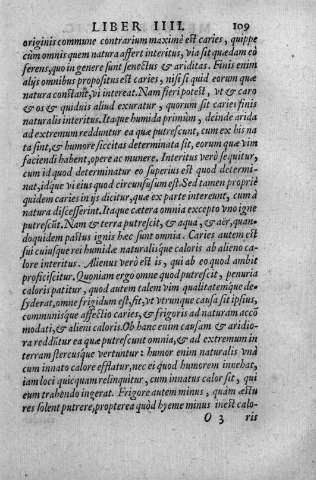 LIBER IIII. 109
originis commune contrarium maximè est caries, quippe
cùm omnis quem natura affert interitus, via sit quædam eò
ferens, quo in genere sunt senectus & ariditas. Finis enim
alijs omnibus propositus est caries, nisi si quid eorum quæ
natura constant, vi intereat. Nam fieri potest, vt & caro
& os & quiduis aliud exuratur, quorum sit caries finis
naturalis interitus. Itaque humida primùm, deinde arida
ad extremum redduntur ea quæ putrescunt, cum ex his na
ta sint, & humore siccitas determinata sit, eorum quæ vim
faciendi habent, opere ac munere. Interitus verò sequitur,
cum id quod determinatur eo superius est quod determi-
nat, idque vi eius quod circunfusum est. Sed tamen propriè
quidem caries in ijs dicitur, quæ ex parte intereunt, cum à
natura discesserint. Itaque cætera omnia excepto vno igne
putrescūt. Nam & terra putrescit, & aqua, & aër, quan-
doquidem pastus ignis hæc sunt omnia. Caries autem est
sui cuiusque rei humidæ naturalisque caloris ab alieno ca-
lore interitus. Alienus verò est is, qui ab eo quod ambit
proficiscitur. Quoniam ergo omne quod putrescit, penuria
caloris patitur, quod autem talem vim qualitatemque de-
syderat, omne frigidum est, fit, vt vtrunque causa sit ipsius,
communisque affectio caries, & frigoris ad naturam acco
modati, & alieni caloris. Ob hanc enim causam & aridio-
ra reddūtur ea quæ putrescunt omnia, & ad extremum in
terram stercusque vertuntur: humor enim naturalis vnà
cum innato calore efflatur, nec ei quod humorem inuehat,
iam loci quicquam relinquitur, cum innatus calor sit, qui
eum trahendo ingerat. Frigore autem minus, quàm æstu
res solent putrere, propterea quòd hyeme minus inest calo-
O 3 ris